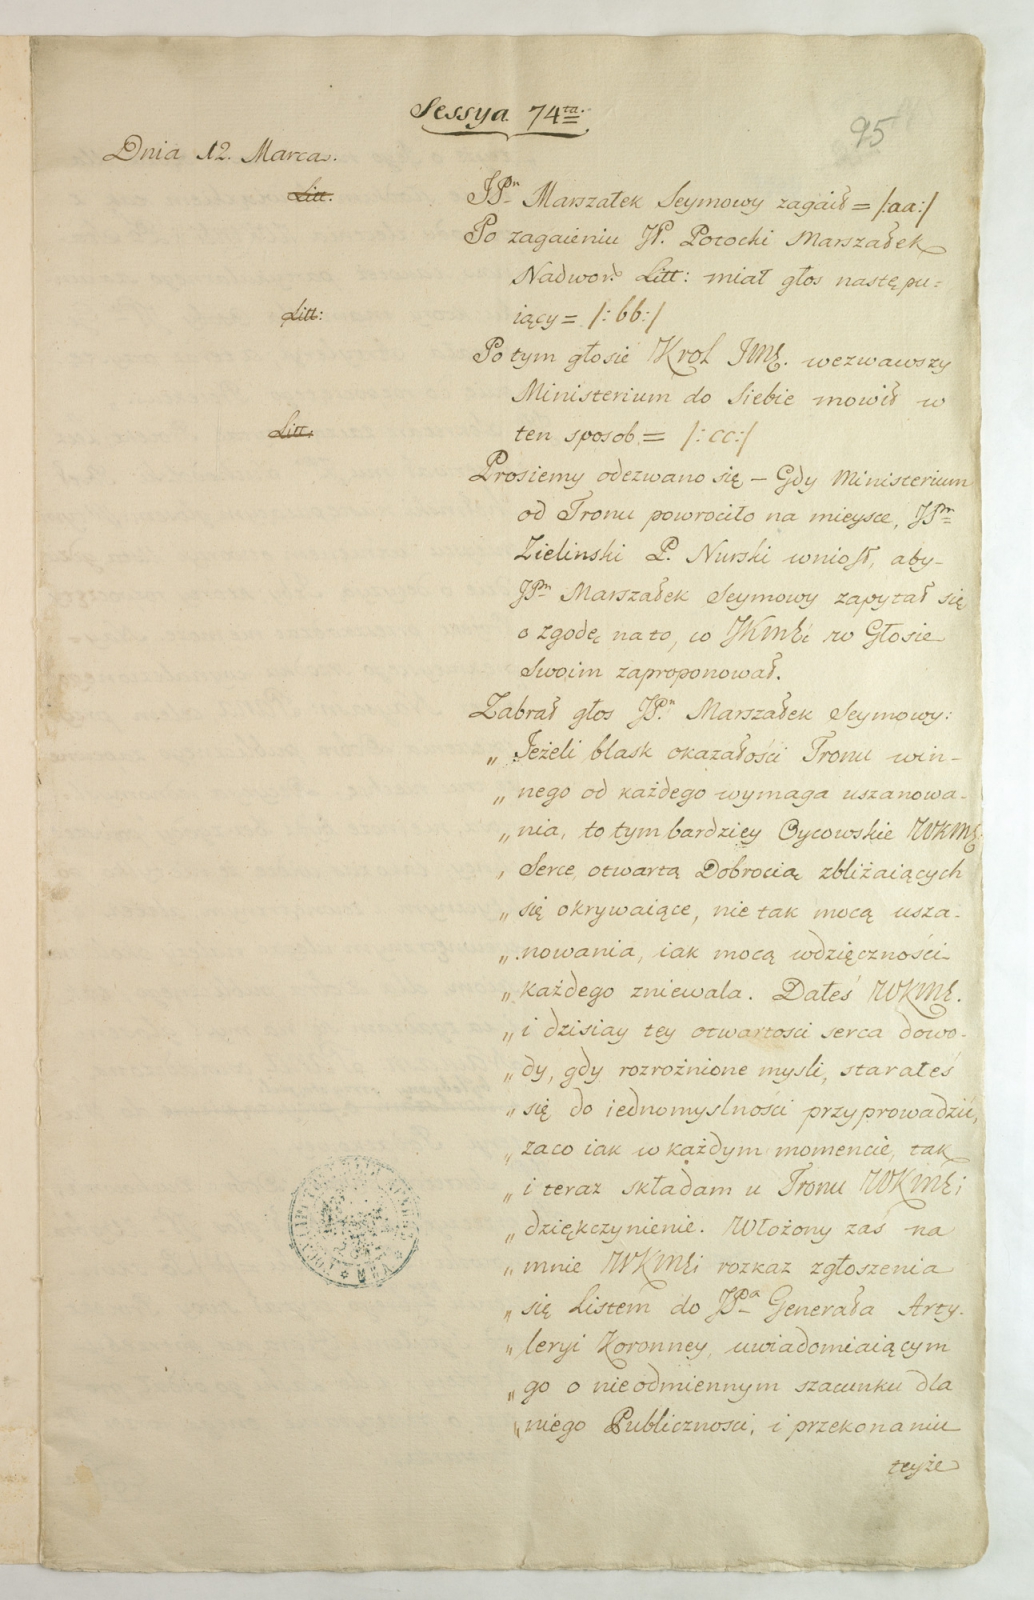 Sessya 74ta.
95
Dnia 12. Marca.
Litt.
JPn Marszałek Seymowy zagaił = /:aa:/
Po zagaieniu JP. Potocki Marszałek
Nadwor: Litt: miał głos następu=
Litt:
iący = /: bb:/
Po tym głosie Krol JMć. wezwawszy
Ministerium do Siebie mowił w
Litt:
ten sposob = /: cc:/
Prosiemy odezwano się – Gdy Ministerium
od Tronu powrociło na mieysce, JPn
Zielinski P. Nurski wniosł, aby
JPn Marszałek Seymowy zapytał się
o zgodę na to, co JKMći w Głosie
Swoim zaproponował.
Zabrał głos JP.n Marszałek Seymowy:
„ Jeżeli blask okazałości Tronu win-
„ nego od każdego wymaga uszanowa-
„ nia, to tym bardziey Oycowskie WKMć
„ Serce otwartą Dobrocią zbliżaiących
„ się okrywaiące, nie tak mocą usza-
„ nowania, iak mocą wdzięczności
„ każdego zniewala. Dałeś WKMć.
„ i dzisiay tey otwartosci serca dowo-
„ dy, gdy rozrożnione mysli, starałeś
„ się do iednomyslności przyprowadzić,
„ zaco iak w każdym momencie, tak
„ i teraz składam u Tronu WKMći
„ dziękczynienie. Włożony zaś na
„ mnie WKMći rozkaz zgłoszenia
„ się Listem do JPa Generała Arty-
„ leryi Koronney, uwiadomiaiącym
„ go o nieodmiennym szacunku dla
„ niego Publicznosci, i przekonaniu
teyże